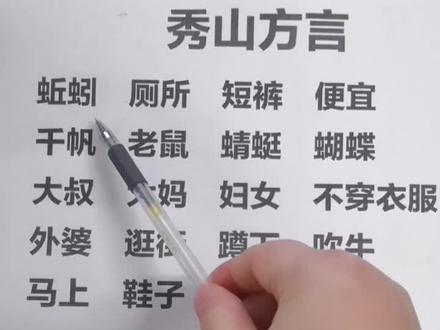 秀山方言
蚯蚓 厕所 短裤 便宜
千帆 老鼠 蜻蜓 蝴蝶
大叔 大妈 妇女 不穿衣服
外婆 逛街 蹲下 吹牛
马上 鞋子